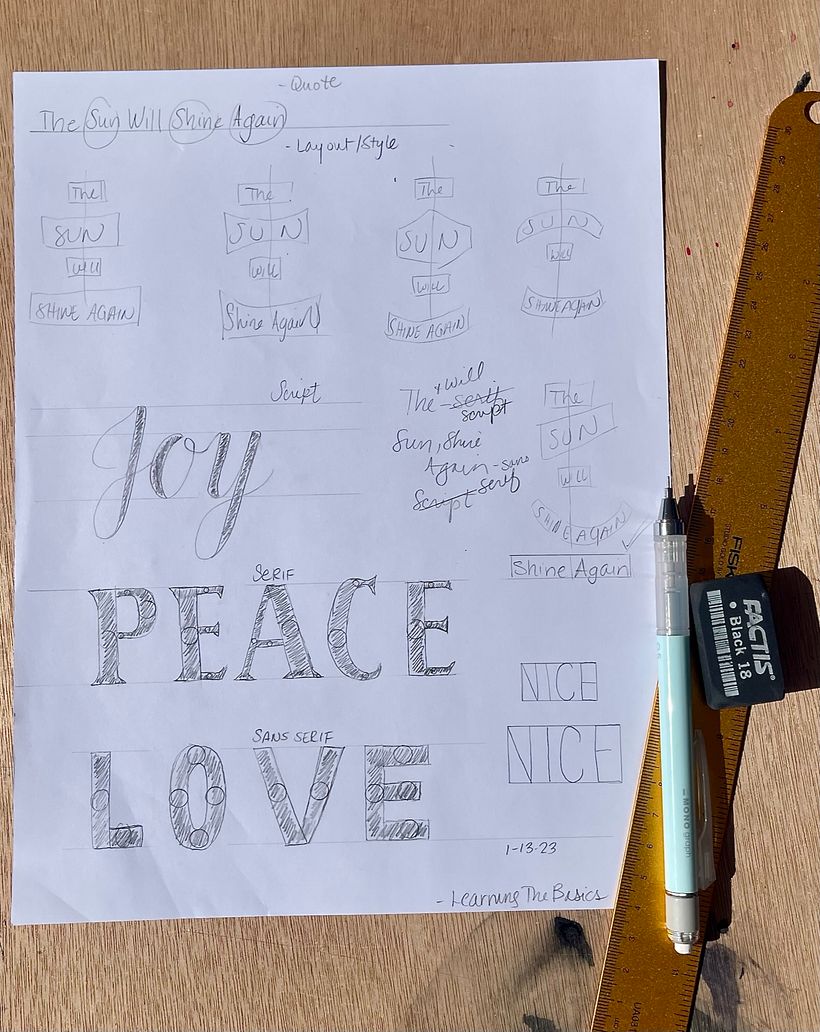 - Quote
The Sun Will Shine Again
- Layout/Style
The
SUN
Will
SHINE AGAIN
The
SUN
Will
Shine Again
The
SUN
Will
SHINE AGAIN
The
SUN
Will
SHINE AGAIN
Script
Joy
+ Will
The - serif
script
Sun, Shine
Again - sans
Script serif
The
SUN
Will
SHINE AGAIN
Shine Again
SERIF
PEACE
NICE
SANS SERIF
LOVE
NICE
1-13-23
- Learning The Basics
FACTIS
Black 18
MONO graph
FISK